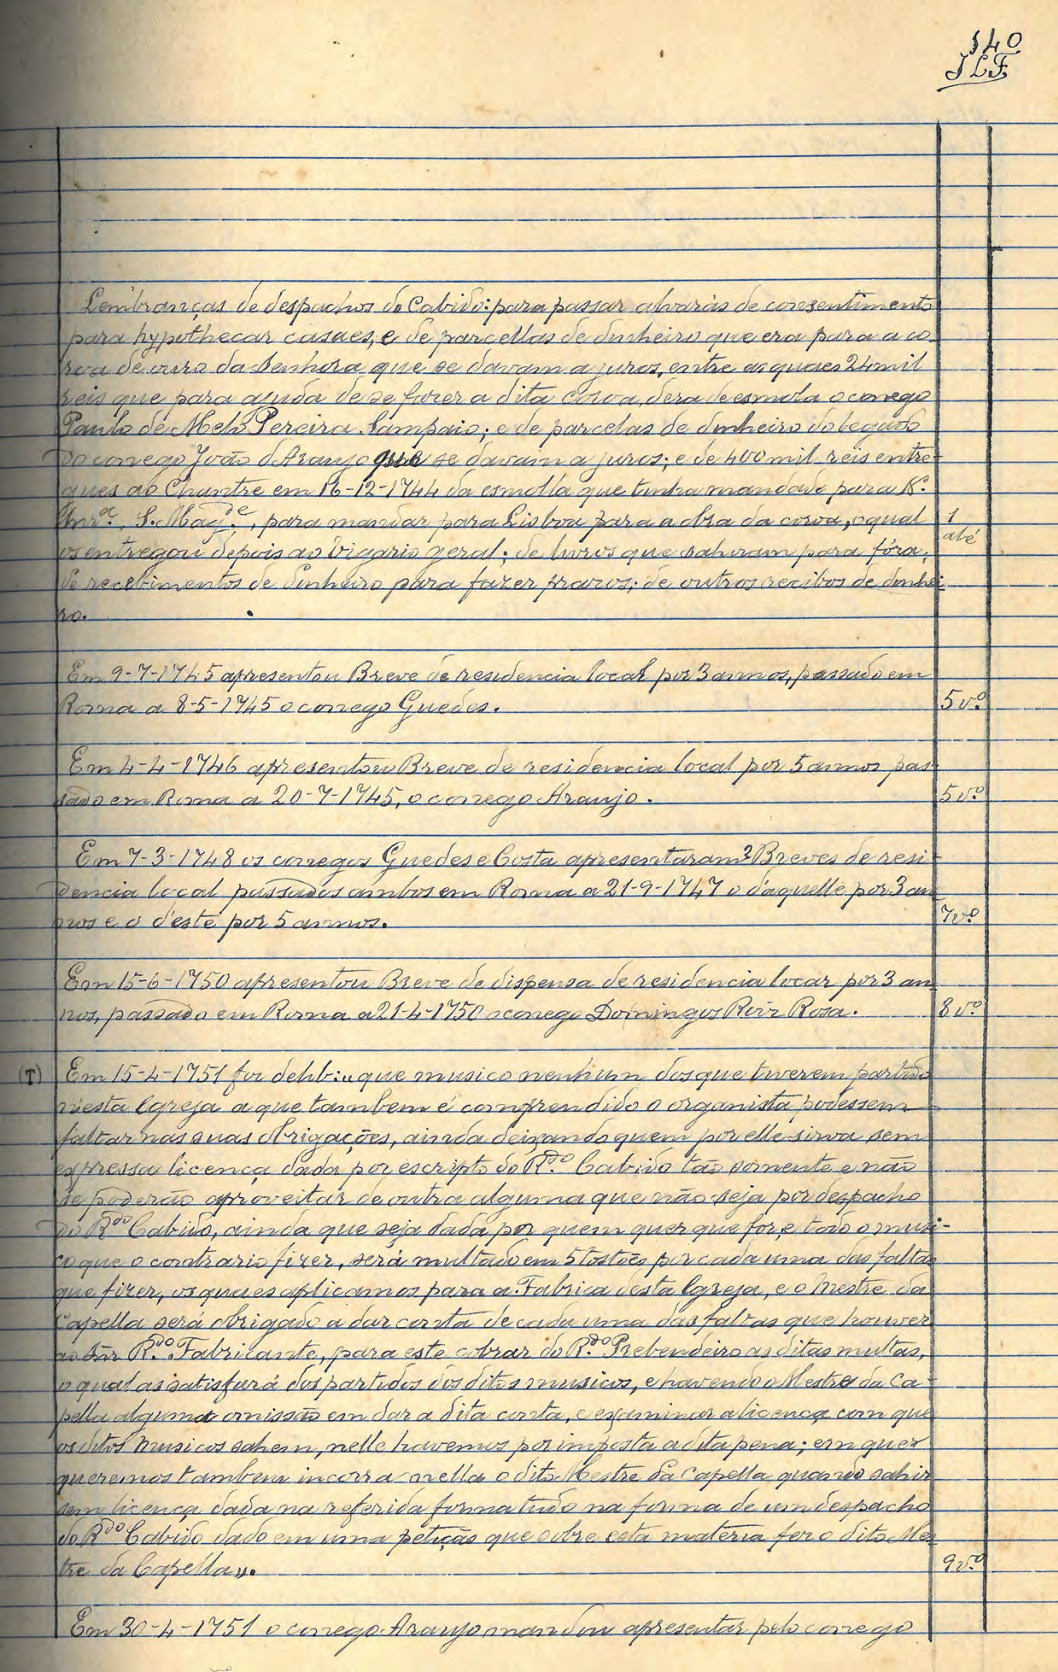 140
JLF
Lembranças de despachos do Cabido: para passar alvarás de consentimento
para hypothecar casaes, e de parcellas de dinheiro que era para a co-
roa de ouro da Senhora, que se davam a juros, entre as quaes 24 mil
reis que para ajuda de se fazer a dita coroa, dera de esmola o conego
Paulo de Mello Pereira Sampaio; e de parcelas de dinheiro do legado
do conego João d'Araujo que se davam a juros; e de 400 mil reis entre-
gues ao Chantre em 16-12-1744 da esmolla que tinha mandado para N.
Snrª., S. Magde., para mandar para Lisboa para a obra da coroa, o qual 1
os entregou depois ao Vigario geral; de livros que sahiram para fóra; até
de recebimentos de dinheiro para fazer prazos; de outros recibos de dinhei-
ro.
Em 9-7-1745 apresentou Breve de residencia local por 3 annos, passado em
Roma a 8-5-1745 o conego Guedes. 5 vº
Em 4-4-1746 apresentou Breve de residencia local por 5 annos pas-
sado em Roma a 20-7-1745, o conego Araujo. 5 vº
Em 7-3-1748 os conegos Guedes e Costa apresentaram 2 Breves de resi-
dencia local passados ambos em Roma a 21-9-1747 o d'aquelle por 3 an-
nos e o d'este por 5 annos. 7 vº
Em 15-6-1750 apresentou Breve de dispensa de residencia local por 3 an-
nos, passado em Roma a 21-4-1750 o conego Domingos Roiz Rosa. 8 vº
(T) Em 15-4-1751 foi delib: „que musico nenhum dos que tiverem partido
n'esta Igreja a que tambem é comprendido o organista, podessem
faltar nas suas obrigações, ainda deixando quem por elle sirva sem
expressa licença dada por escripto do Rdo. Cabido tão somente e não
se poderão aproveitar de outra alguma que não seja por despacho
do Rdo Cabido, ainda que seja dada por quem quer que for, e todo o musi-
co que o contrario fizer, será multado em 5 tostões por cada uma das faltas
que fizer, os quaes aplicamos para a Fabrica desta Igreja, e o Mestre da
Capella será obrigado a dar conta de cada uma das faltas que houver
ao Snr Rdo. Fabricante, para este cobrar do Rdo. Prebendeiro as ditas multas,
o qual as satisfará dos partidos dos ditos musicos, e havendo o Mestre da Ca-
pella alguma omissão em dar a dita conta, e examinar a licença com que
os ditos musicos sahem, nelle havemos por imposta a dita pena; em quer
queremos tambem incorra nella o dito Mestre da Capella quando sahir
sem licença dada na referida forma tudo na forma de um despacho
do Rdo Cabido dado em uma petição que sobre esta materia fez o dito Mes-
tre da Capella„. 9 vº
Em 30-4-1751 o conego Araujo mandou apresentar pelo conego